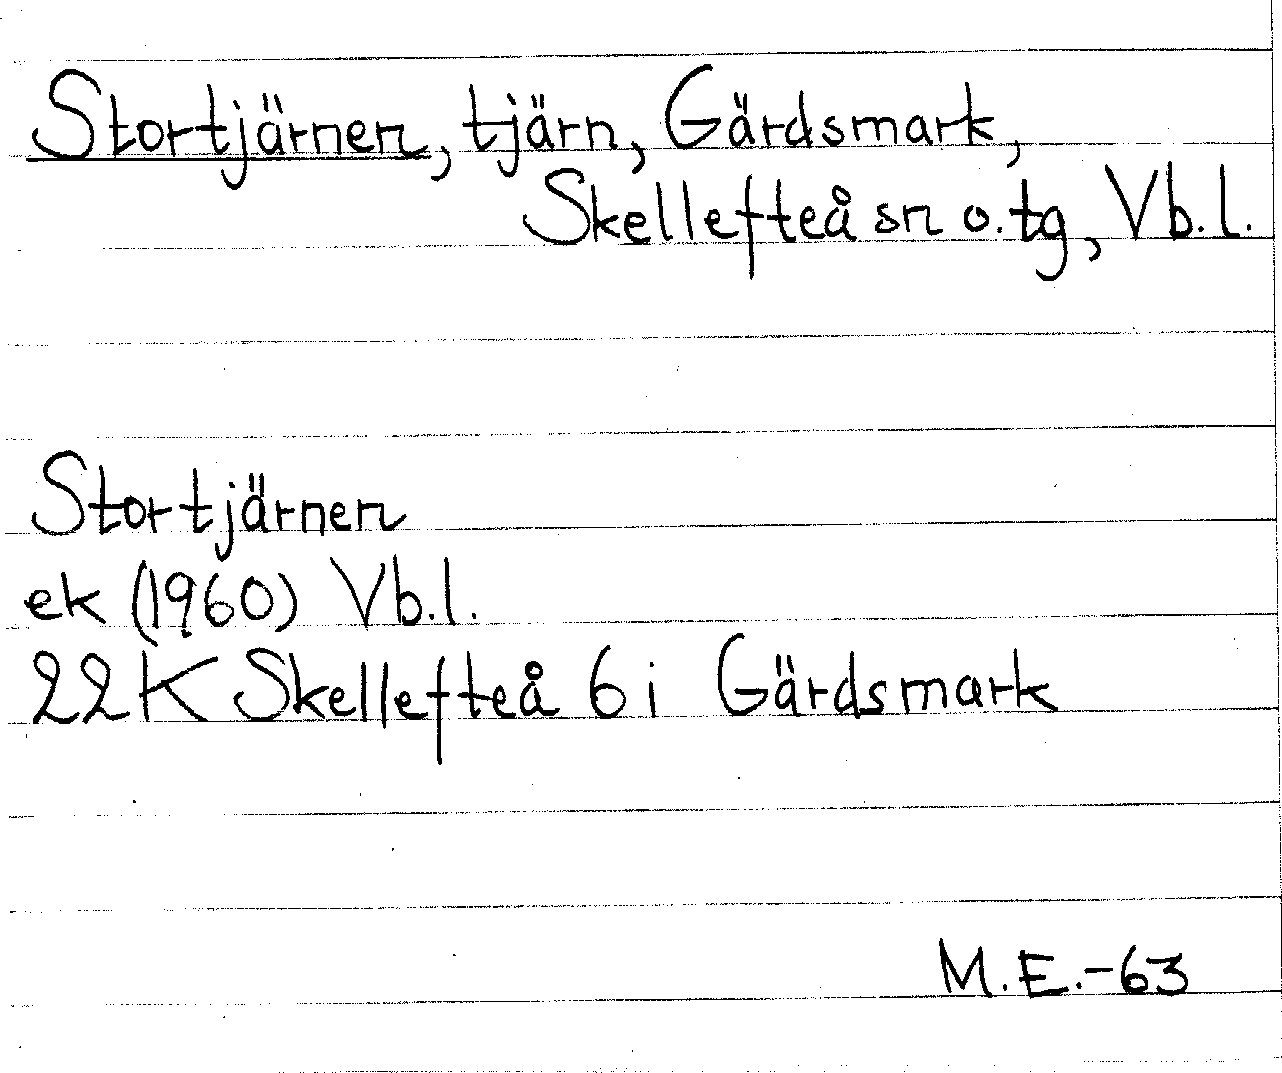 Stortjärnen, tjärn, Gärdsmark,
Skellefteå sn o. tg, Vb.l.
Stortjärnen
ek (1960) Vb.l.
22K Skellefteå 6i Gärdsmark
M.E.-63